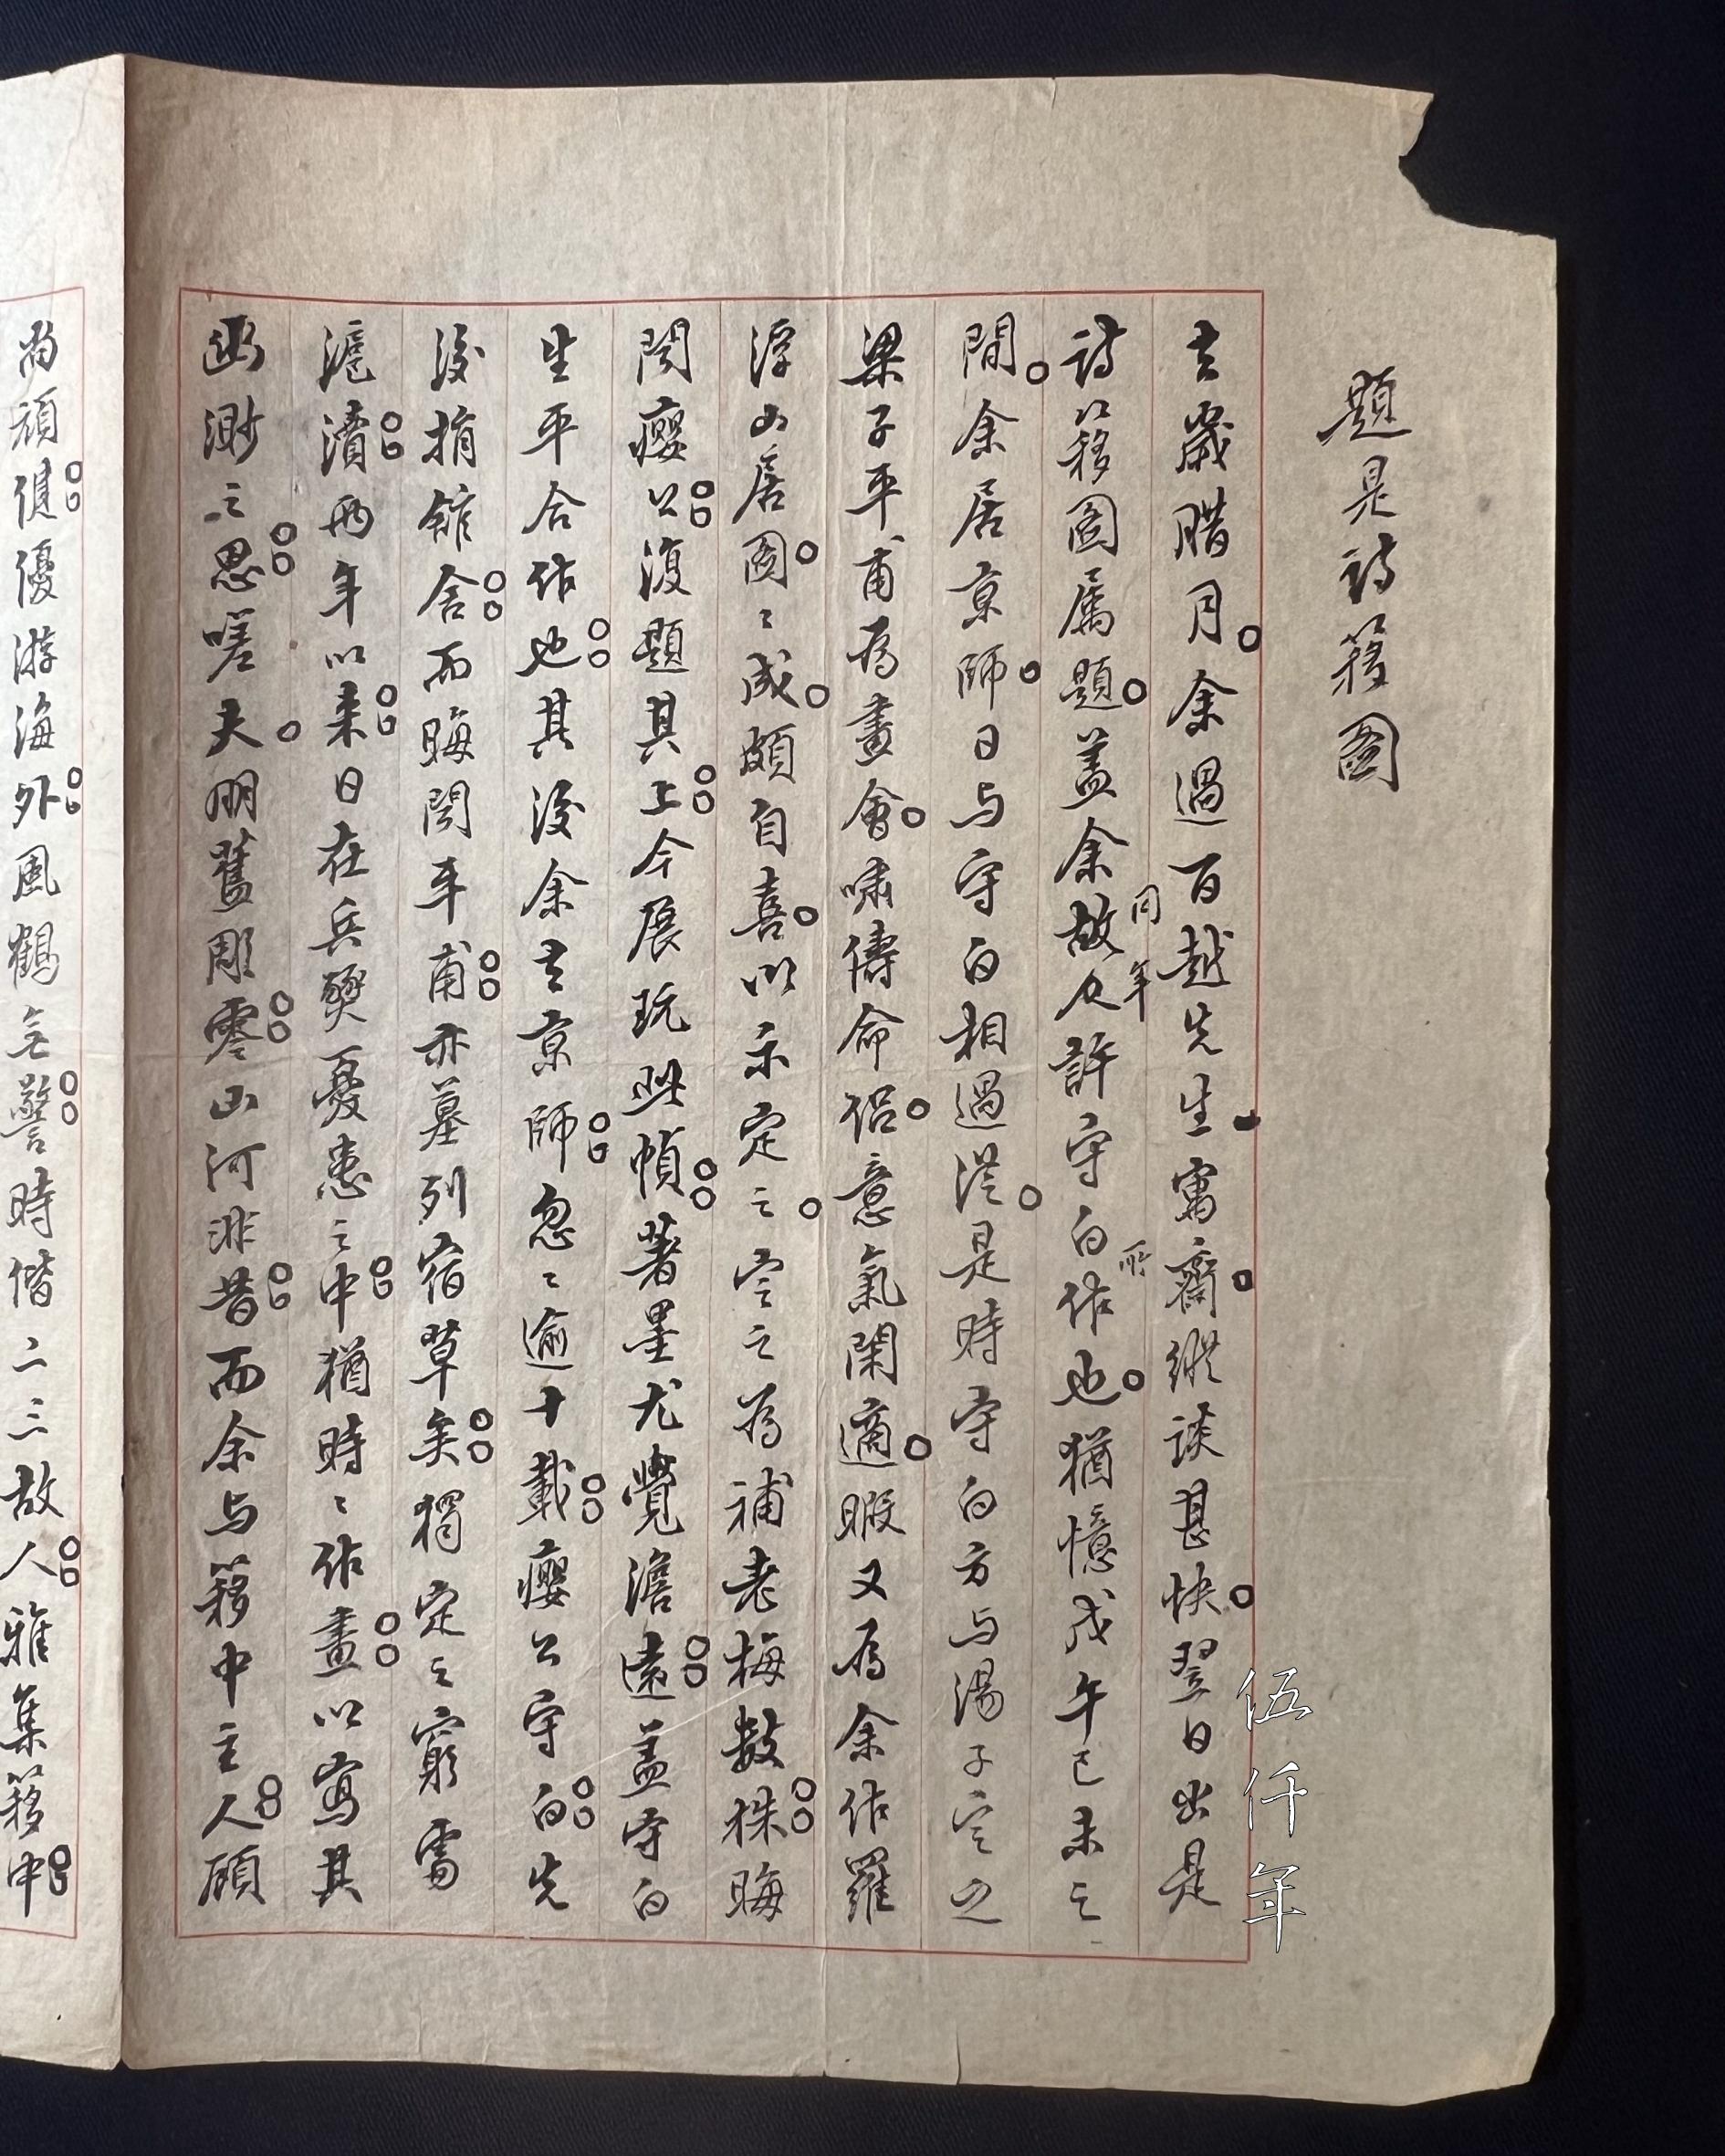 題是詩簃圖
去歲腊月余過百越先生寓齋縱談甚快翌日出是
詩簃圖屬題盖余故人同年許守白所作也猶憶戊午己未之
間余居京師日与守白相過從是時守白方与湯子定之
梁子平甫為畫會嘯儔命侶意氣閑適暇又為余作羅
浮山居圖〻成頗自喜以示定之定之為補老梅數株晦
聞癭公復題其上今展玩此幀著墨尤覺澹遠盖守白
生平合作也其後余去京師忽〻逾十載癭公守白先
後捐舘舍而晦聞平甫亦墓列宿草矣獨定之窮留
滬瀆兩年以来日在兵燹憂患之中猶時〻作畫以寫其
幽渺之思嗟夫朋舊彫零山河非昔而余与簃中主人顧
尚頑健優游海外風鶴无警時偕二三故人雅集簃中
伍仟年